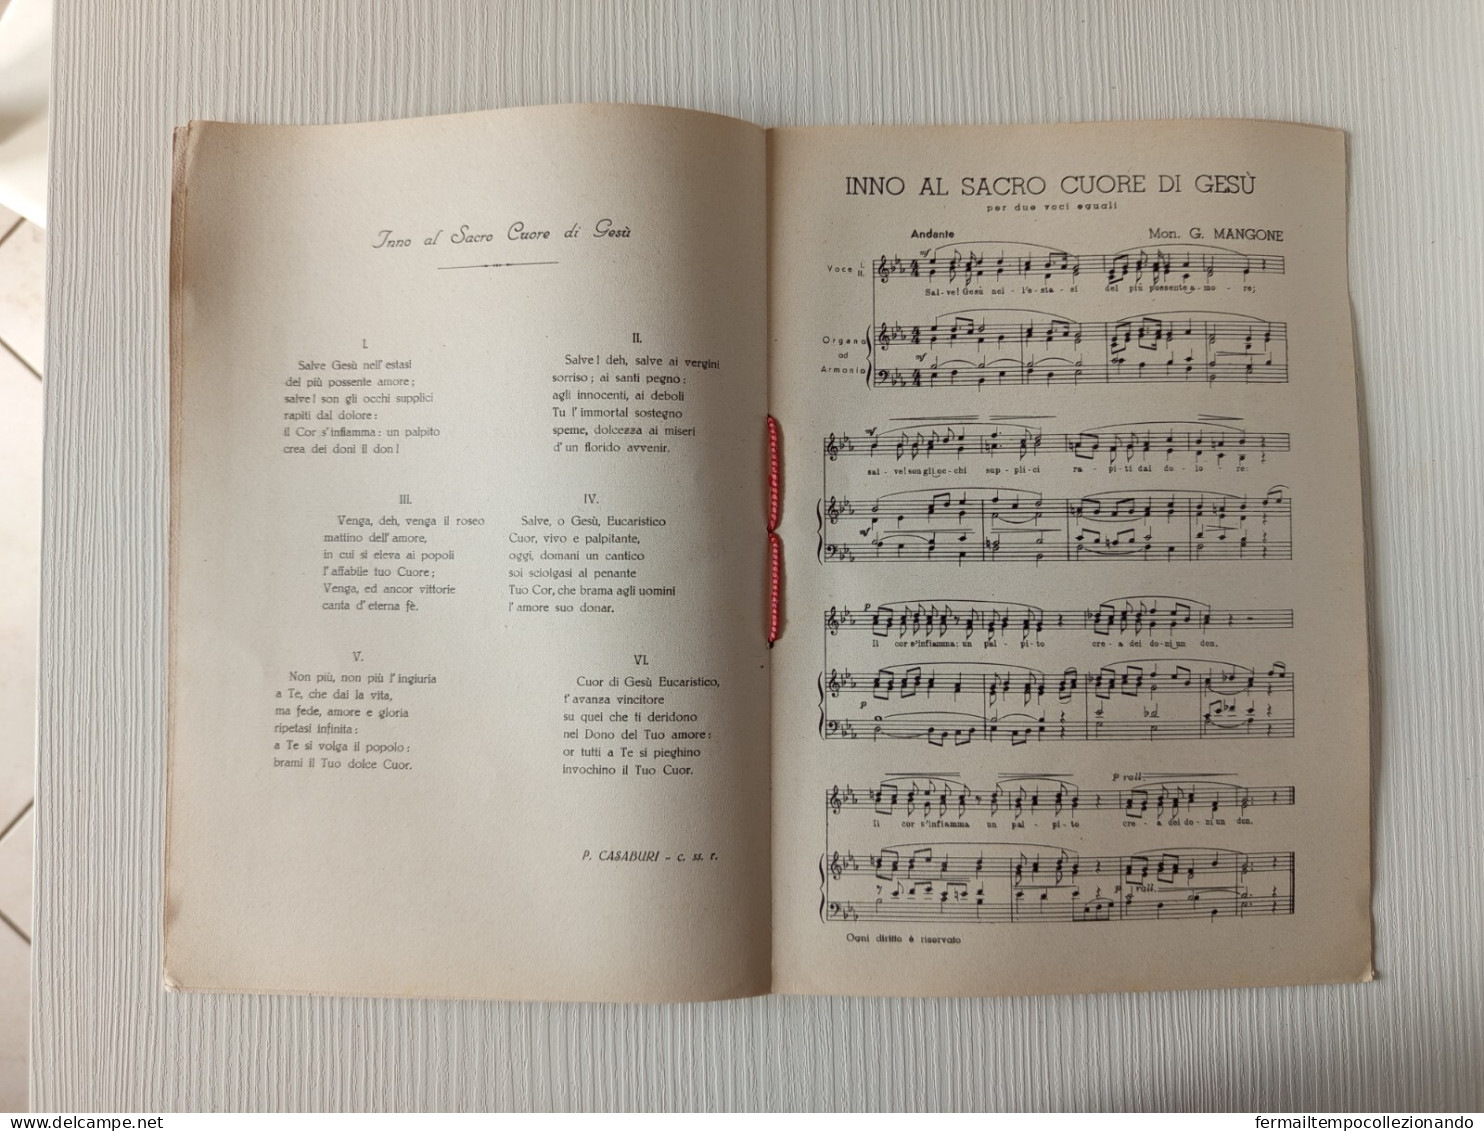 Inno al Sacro Cuore di Gesù
I.
Salve Gesù nell' estasi
del più possente amore;
salve! son gli occhi supplici
rapiti dal dolore:
il Cor s'infiamma: un palpito
crea dei doni il don!
II.
Salve! deh, salve ai vergini
sorriso; ai santi pegno:
agli innocenti, ai deboli
Tu l' immortal sostegno
speme, dolcezza ai miseri
d' un florido avvenir.
III.
Venga, deh, venga il roseo
mattino dell' amore,
in cui si eleva ai popoli
l' affabile tuo Cuore;
Venga, ed ancor vittorie
canta d' eterna fè.
IV.
Salve, o Gesù, Eucaristico
Cuor, vivo e palpitante,
oggi, domani un cantico
soi sciolgasi al penante
Tuo Cor, che brama agli uomini
l' amore suo donar.
V.
Non più, non più l' ingiuria
a Te, che dai la vita,
ma fede, amore e gloria
ripetasi infinita:
a Te si volga il popolo:
brami il Tuo dolce Cuor.
VI.
Cuor di Gesù Eucaristico,
t' avanza vincitore
su quei che ti deridono
nel Dono del Tuo amore:
or tutti a Te si pieghino
invochino il Tuo Cuor.
P. CASABURI - c. ss. r.
INNO AL SACRO CUORE DI GESÙ
per due voci eguali
Andante
Mon. G. MANGONE
mf
Voce I.
II.
Sal-ve! Gesù nel-l'e-sta-si del più possente a-mo-re;
Organo
od
Armonio
mf
mf
sal-ve! son gli oc-chi sup-pli-ci ra-pi-ti dal do-lo-re:
mf
p
Il cor s'infiamma: un pal-pi-to cre-a dei do-ni un don.
p
p rall.
Il cor s'infiamma un pal-pi-to cre-a dei do-ni un don.
p rall.
Ogni diritto è riservato
fermailtempocollezionando